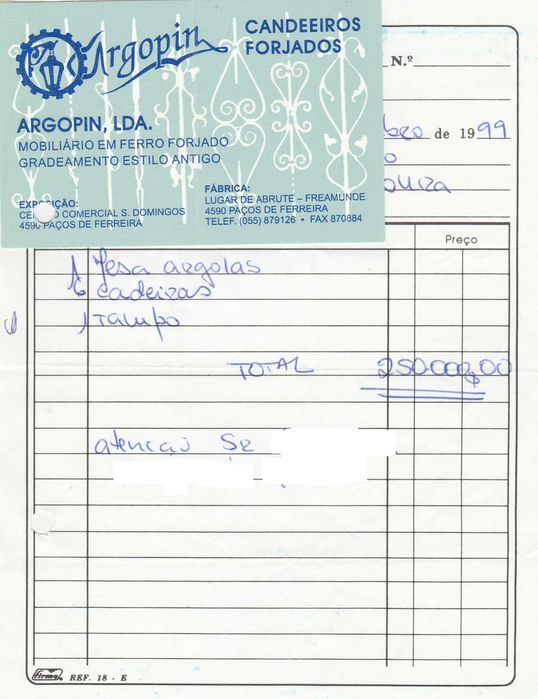 Argopin
CANDEEIROS
FORJADOS
ARGOPIN, LDA.
MOBILIÁRIO EM FERRO FORJADO
GRADEAMENTO ESTILO ANTIGO
EXPOSIÇÃO:
COMERCIAL S. DOMINGOS
4590 PAÇOS DE FERREIRA
FÁBRICA:
LUGAR DE ABRUTE – FREAMUNDE
4590 PAÇOS DE FERREIRA
TELEF. (055) 879126 • FAX 870884
N.º
bro de 1999
o
Preço
1 Mesa argolas
6 cadeiras
1 Tampo
TOTAL 250.000$00
atencao Sr
firmo REF. 18 - E